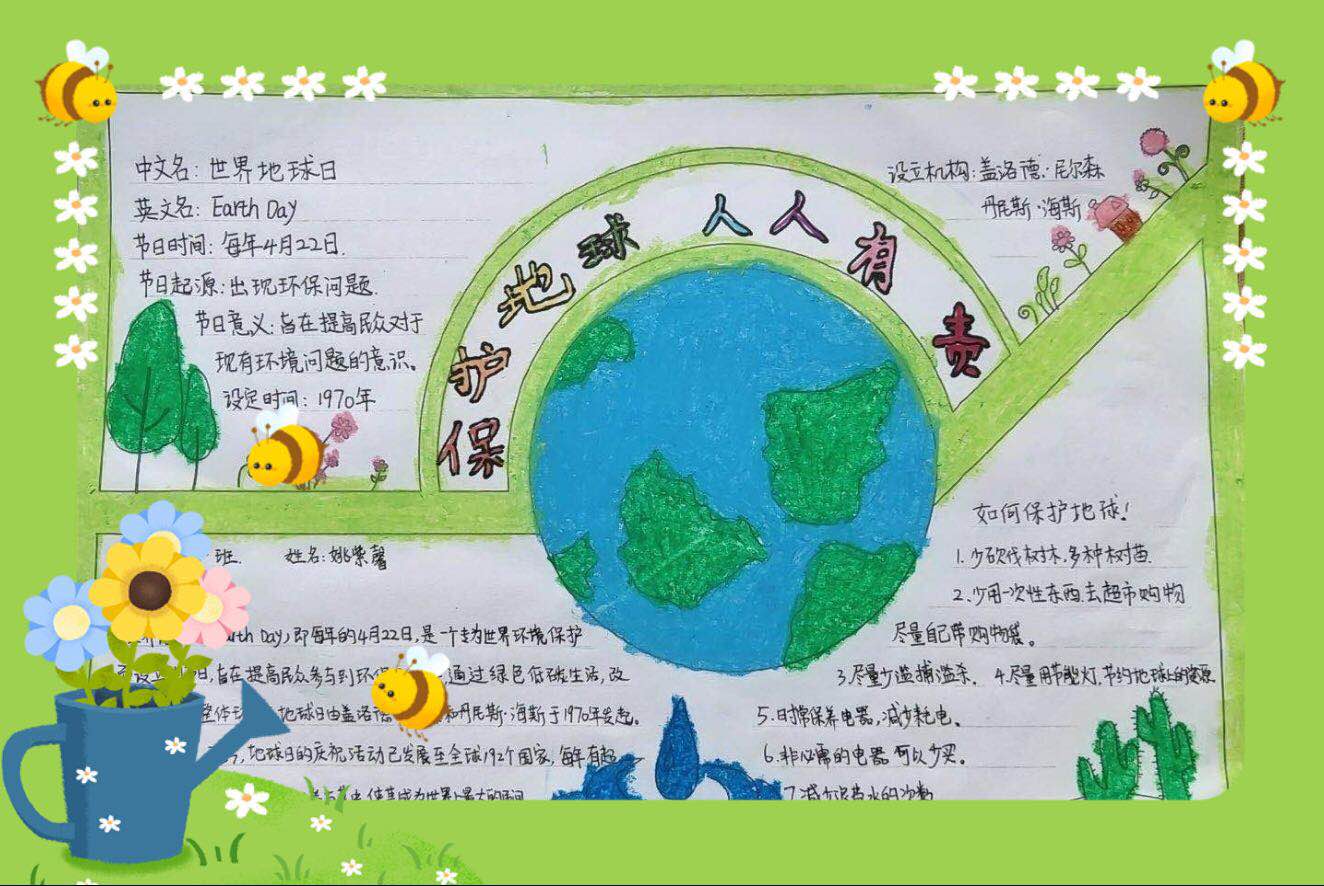 保护地球人人有责
中文名:世界地球日
英文名:Earth Day
节日时间:每年4月22日.
节日起源:出现环保问题.
节日意义:旨在提高民众对于
现有环境问题的意识。
设定时间:1970年
设立机构:盖洛德·尼尔森
丹尼斯·海斯
班. 姓名:姚紫馨
Earth Day),即每年的4月22日,是一个专为世界环境保护
设立 日,旨在提高民众参与到环 通过绿色低碳生活,改
整体环 地球日由盖洛德 和丹尼斯·海斯于1970年发起。
,地球日的庆祝活动已发展至全球192个国家,每年有超
如何保护地球!
1.少砍伐树木,多种树苗.
2.少用一次性东西,去超市购物
尽量自己带购物袋。
3.尽量少滥捕滥杀. 4.尽量用节能灯,节约地球上的资源
5.时常保养电器,减少耗电。
6.非必需的电器可以少买。